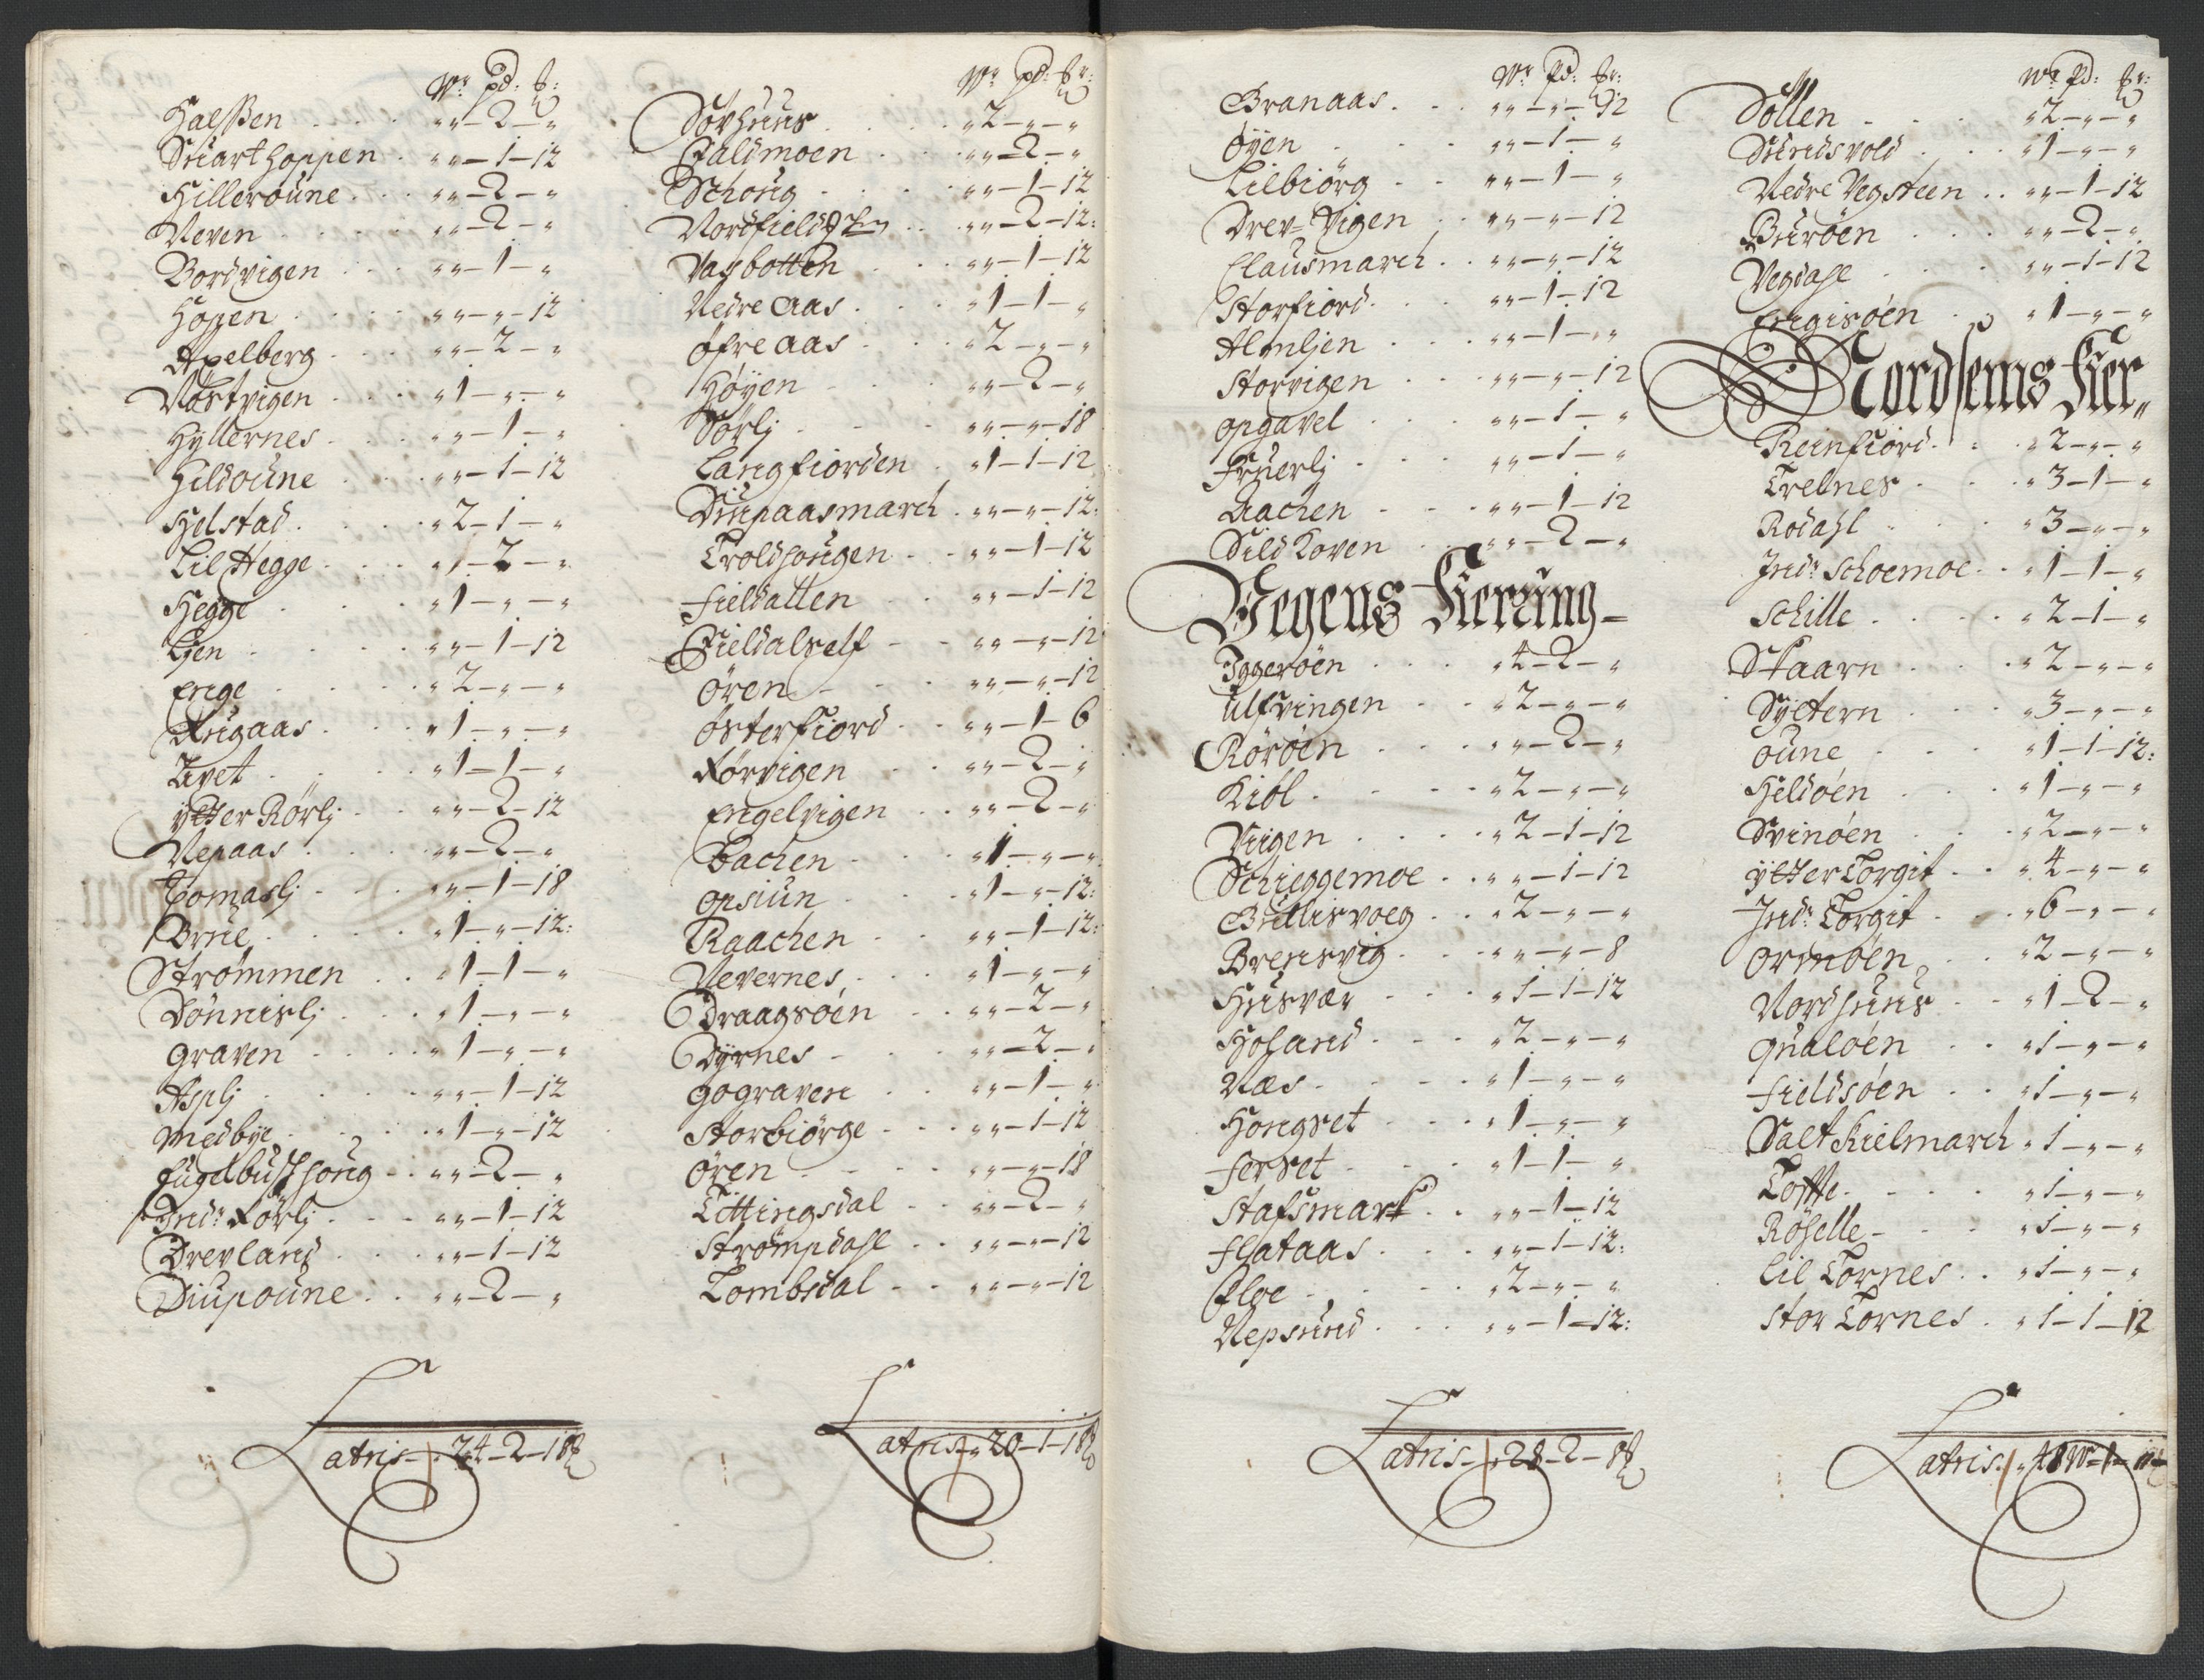 Wr pd: ℔:
Halßen . . . „ „ – 2 – „
Suarthoppen . „ „ – 1 – 12
Hilleroune . . „ „ – 2 – „
Neven . . . „ „ – 2 – „
Bordvigen . . „ „ – 1 – „
Hopen . . . „ „ – „ – 12
Axelberg . . . „ „ – 2 – „
Nästvigen . . „ 1 – „ – „
Hyllernes . . „ „ – 1 – „
Hildoune . . „ „ – 1 – 12
Helstad . . . „ 2 – 1 – „
Lil Hegge . . . „ „ – 2 – „
Hegge . . . „ 1 – „ – „
Lien . . . „ „ – 1 – 12
Enge . . . „ 2 – „ – „
Augaas . . . „ 1 – „ – „
Tvet . . . „ 1 – 1 – „
Ytter Rörlj . . „ „ – 2 – 12
Nepaas . . . „ „ – 2 – „
Tomaslj . . . „ „ – 1 – 18
Brue . . . „ 1 – „ – 12:
Strømmen . . „ 1 – 1 – „
Dönnislj . . . „ 1 – „ – „
Graven . . . „ 1 – „ – „
Asplj . . . „ „ – 1 – 12
Medbye . . . „ 1 – „ – 12
Fugelbusthoug . . „ „ – 2 – „
Indr Körlj . . . „ „ – 1 – 12
Drevland . . . „ „ – 1 – 12
Diupoune . . „ „ – 2 – „
Latris – „ 24 – 2 – 18 ℔
Wr pd: ℔r:
Sörhuus . . . „ 2 – „ – „
Faldmoen . . „ „ – 2 – „
Schoug . . . „ „ – 1 – 12
Nordfield . . „ „ – 2 – 12:
Vasbotten . . „ „ – 1 – 12
Nedre Aas . . „ 1 – 1 – „
Öfre aas . . „ 2 – „ – „
Höyen . . . „ „ – 2 – „
Sörlj . . . „ „ – „ – 18
Langfiorden . „ 1 – 1 – 12
Diupaasmarch . „ „ – „ – 12:
Troldhougen . . „ „ – 1 – 12
Fieldatten . . „ „ – 1 – 12
Fieldalself – – „ „ – „ – 12
Ören . . . „ „ – „ – 12
Österfiord . . „ „ – 1 – 6
Körvigen . . „ „ – 2 – „
Engelvigen . . „ „ – 2 – „
Bachen . . . „ 1 – „ – „
Opsiun . . . „ 1 – „ – 12:
Raachen . . „ „ – 1 – 12:
Nevernes . . „ 1 – „ – „
Draagsöen . . „ „ – 2 – „
Dyrnes – . . „ „ – 2 – „
Gograven . . „ „ – 1 – „
Storbiörge . . „ „ – 1 – 12
Ören . . . „ „ – „ – 18
Tittingsdal . . „ „ – 2 – „
Strömpdahl . . „ „ – „ – 12
Lombsdal – . „ „ – „ – 12
Latris – „ 20 – 1 – 18 ℔
Wr pd: ℔r:
Granaas . . . „ „ – „ – 12
Öyen . . . „ „ – 1 – „
Lilbiörg . . „ „ – 1 – „
Drev=Vigen . . „ „ – „ – 12
Clausmarch . . „ „ – „ – 12
Storfiord . . „ „ – 1 – 12
Almljen . . . „ „ – 1 – „
Storvigen . . „ „ – „ – 12
Opgavel . . . „ „ – 1 – „
Fruerlj . . . „ „ – 1 – „
Aachen . . . „ „ – 1 – 12
Sild Koven . . „ „ – 2 – „
Vegens Fierung –
Yggeröen . . . „ 4 – 2 – „
Ulfvingen . . „ 2 – „ – „
Röröen . . . „ „ – 2 – „
Kiöl . . . „ 2 – „ – „
Viigen . . . „ 2 – 1 – 12
Schieggemoe . . „ „ – 1 – 12
Gullisvoeg . . „ 2 – „ – „
Bremsvig . . „ „ – „ – 8
Husvær . . . „ 1 – 1 – 12
Holand . . . „ 2 – „ – „
Næs . . . „ 1 – „ – „
Hongset . . . „ 1 – „ – „
Ferset . . . „ 1 – 1 – „
Stafsmark . . „ „ – 1 – 12
Flataas . . . „ „ – 1 – 12:
Floe . . . „ 2 – „ – „
Nepsund . . . „ „ – 1 – 12:
Latris – „ 28 – 2 – 8 ℔
Wr pd: ℔r:
Sollen . . . „ 2 – „ – „
Sundsvold . . „ 1 – „ – „
Nedre Vegsteen . . „ „ – 1 – 12
Buröen . . . „ „ – 2 – „
Vegdahl . . . „ „ – 1 – 12
Engisöen . . „ 1 – „ – „
Nordsems Fier„
Reinfiord . . . „ 2 – „ – „
Trelnes . . . „ 3 – 1 – „
Rodahl . . . „ 3 – „ – „
Indr Schoemoe . . „ 1 – 1 – „
Schille . . . „ 2 – 1 – „
Skaarn . . . „ 2 – „ – „
Syltern . . . „ 3 – „ – „
Oune . . . „ 1 – 1 – 12:
Hildöen . . . „ 1 – „ – „
Svinöen . . . „ 2 – „ – „
Ytter Torgit . . „ 4 – „ – „
Indr Torgit . . „ 6 – „ – „
Ormöen . . . „ 2 – „ – „
Nordhuus . . „ 1 – 2 – „
Qualöen . . „ 1 – „ – „
Fieldsöen . . „ 1 – „ – „
Salt Kielmarch „ 1 – „ – „
Tofte . . . „ 1 – „ – „
Röhelle – . . „ 1 – „ – „
Lil Tornes . . „ 1 – „ – „
Stor Tornes . „ 1 – 1 – 12
Latris „ 48 Wr – 1 –